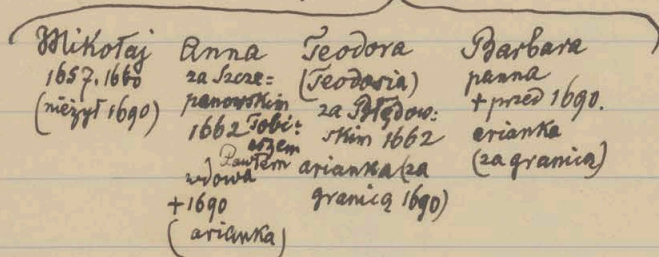 Mikołaj
1657. 1660
(nieżył 1690)
Anna
za Szcze=
panowskim
1662 Tobi=
aszem
Pawłem
wdowa
+1690
(arianka)
Teodora
(Teodosia)
za Błędow=
skim 1662
arianka (za
granicą 1690)
Barbara
panna
+ przed 1690.
arianka
(za granicą)